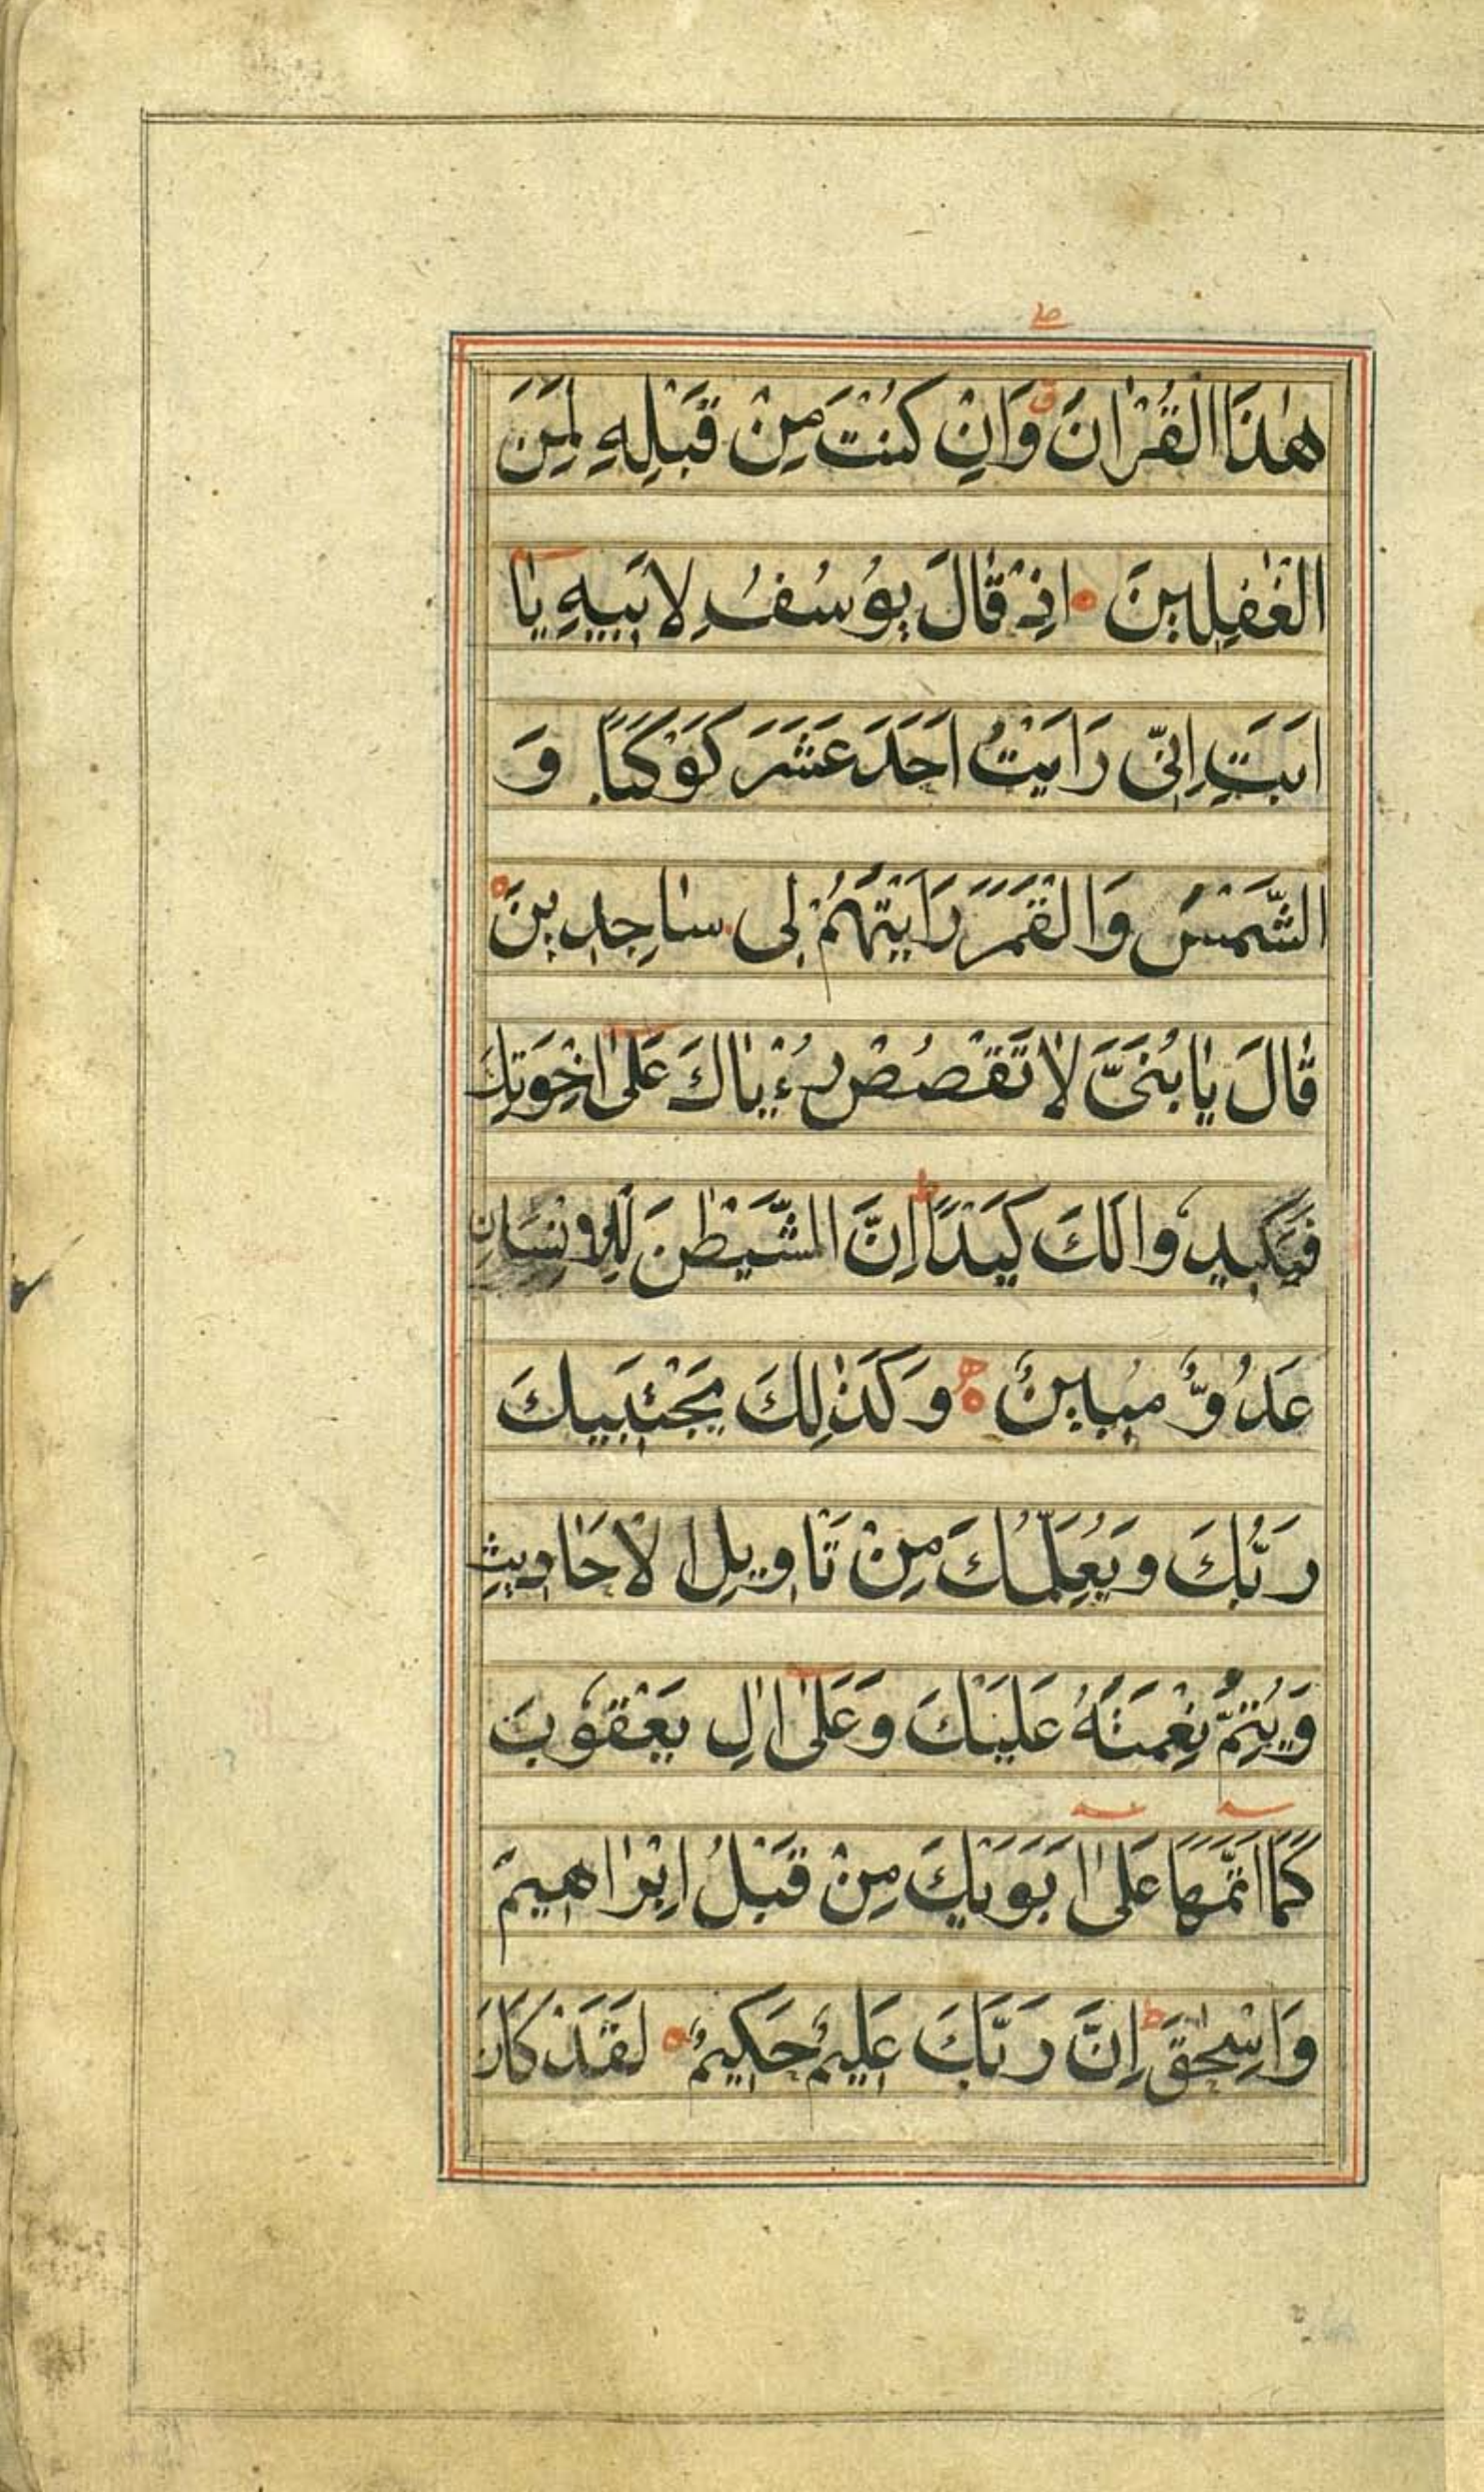 هٰذَا الْقُرْاٰنَ وَاِنْ كُنْتَ مِنْ قَبْلِهِ لَمِنَ
الْغٰفِلِينَ اِذْ قَالَ يُوسُفُ لِاَبِيهِ يَا
اَبَتِ اِنِّى رَاَيْتُ اَحَدَ عَشَرَ كَوْكَبًا وَ
الشَّمْسَ وَالْقَمَرَ رَاَيْتَهُمْ لِى سٰاجِدِينَ
قٰالَ يٰا بُنَىَّ لٰا تَقْصُصْ رُءْيٰاكَ عَلٰى اِخْوَتِكَ
فَيَكِيدُوا لَكَ كَيْدًا ط اِنَّ الشَّيْطٰنَ لِلْاِنْسَانِ
عَدُوٌّ مُبِينٌ وَكَذٰلِكَ يَجْتَبِيكَ
رَبُّكَ وَيُعَلِّمُكَ مِنْ تَاْوِيلِ الْاَحَادِيثِ
وَيُتِمُّ نِعْمَتَهُ عَلَيْكَ وَعَلٰى اٰلِ يَعْقُوبَ
كَمَا اَتَمَّهَا عَلٰى اَبَوَيْكَ مِنْ قَبْلُ اِبْرٰاهِيمَ
وَاِسْحٰقَ ط اِنَّ رَبَّكَ عَلِيمٌ حَكِيمٌ لَقَدْ كَانَ